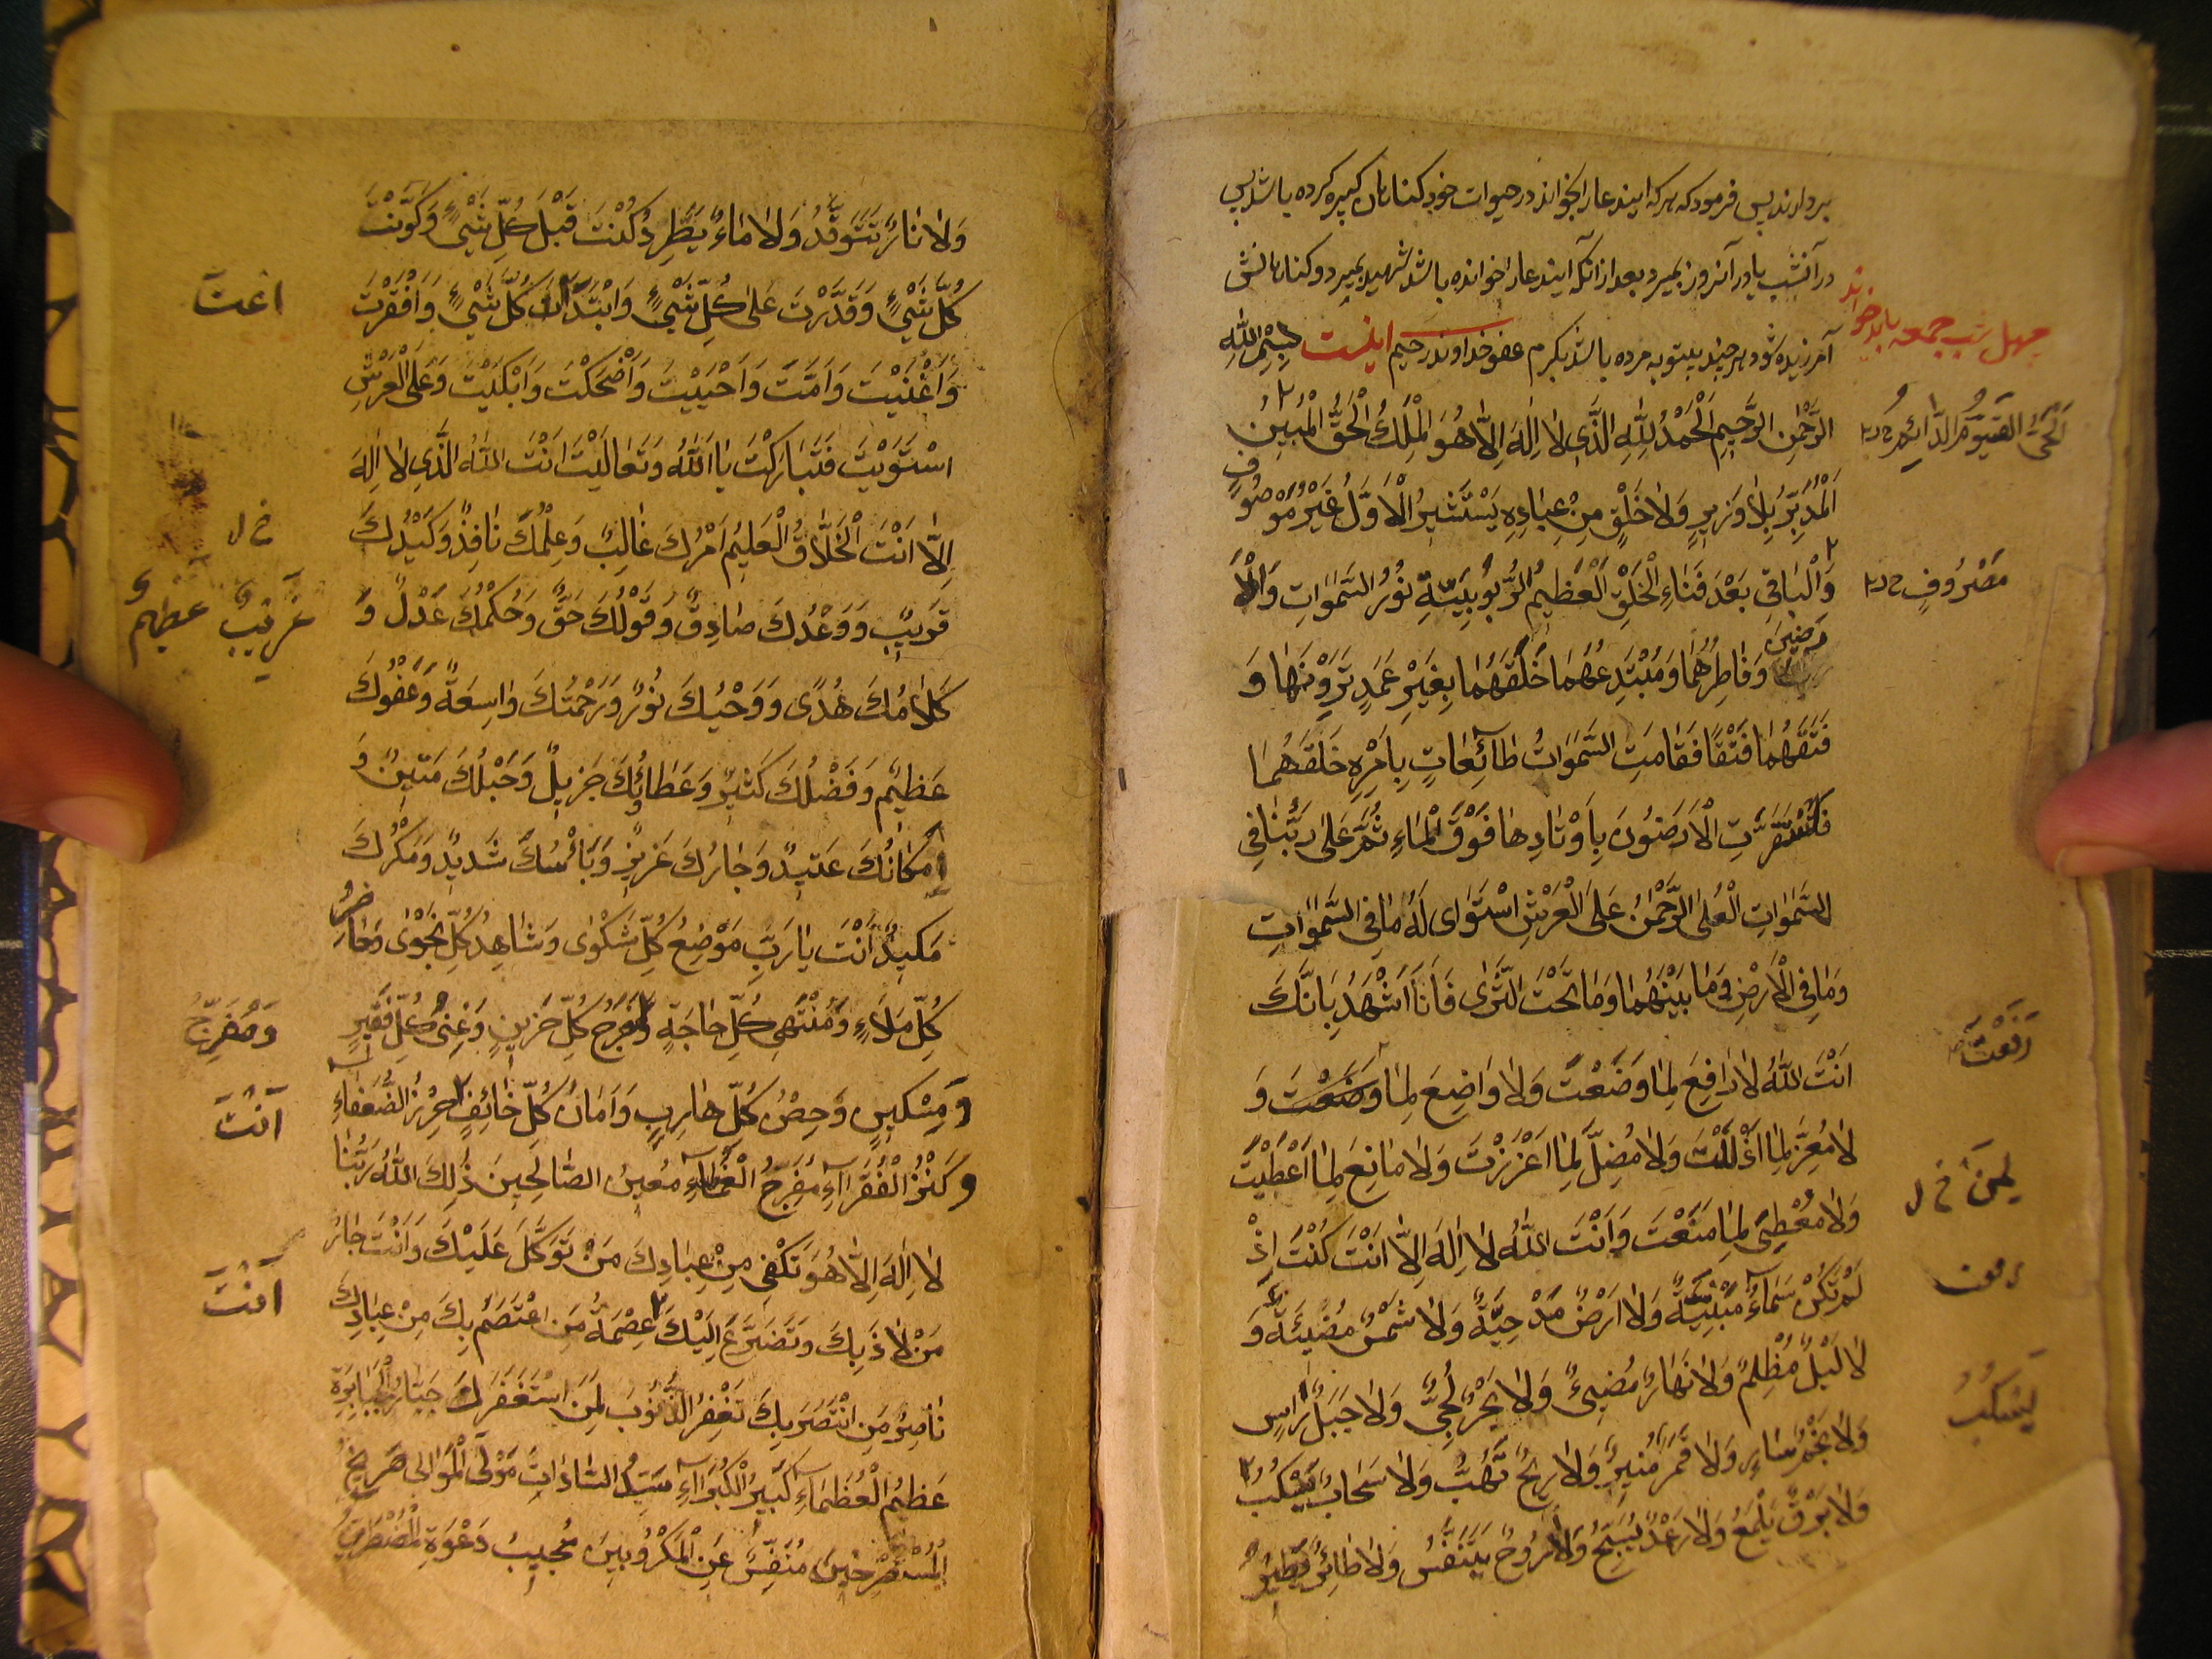 بردارند پس فرمود که هر که ایندعا را بخواند در حیوات خود کناهان کبیره کرده باشد پس
در آنشب یا در آنروز بمیرد بعد از آنکه ایندعا را خوانده باشد شهید بمیرد و کناهانش
آمرزیده شود هر چند بیتوبه مرده باشد بکرم عفو خداوند رحیم اینست بِسْمِ اللّٰهِ
چهل شب جمعه باید خواند
الرَّحْمٰنِ الرَّحِيمِ اَلْحَمْدُ لِلّٰهِ الَّذِي لا اِلٰهَ اِلَّا هُوَ الْمَلِكُ الْحَقُّ الْمُبِينُ
اَلْحَيُّ الْقَيُّومُ الدَّائِمُ
اَلْمُدَبِّرُ بِلا وَزِيرٍ وَلا خَلْقٍ مِنْ عِبادِهِ يَسْتَشِيرُ الْاَوَّلُ غَيْرُ مَوْصُوفٍ
وَالْباقِي بَعْدَ فَناءِ الْخَلْقِ الْعَظِيمُ الرُّبُوبِيَّةِ نُورُ السَّمٰوٰاتِ وَالْاَ
مَصْرُوفٍ
رَضِينَ وَفاطِرُهُما وَمُبْتَدِعُهُما خَلَقَهُما بِغَيْرِ عَمَدٍ تَرَوْنَها وَ
فَتَقَهُما فَتْقًا فَقامَتِ السَّمٰوٰاتُ طائِعاتٍ بِاَمْرِهِ خَلَقَهُما
فَاسْتَقَرَّتِ الْاَرَضُونَ بِاَوْتادِها فَوْقَ الْماءِ ثُمَّ عَلا رَبُّنا فِي
السَّمٰوٰاتِ الْعُلٰى الرَّحْمٰنُ عَلَى الْعَرْشِ اسْتَوٰى لَهُ ما فِي السَّمٰوٰاتِ
وَما فِي الْاَرْضِ وَما بَيْنَهُما وَما تَحْتَ الثَّرٰى فَاَنَا اَشْهَدُ بِاَنَّكَ
رَفَعْتَ
اَنْتَ اللّٰهُ لا رافِعَ لِما وَضَعْتَ وَلا واضِعَ لِما وَضَعْتَ وَ
لا مُعِزَّ لِما اَذْلَلْتَ وَلا مُضِلَّ لِما اَعْزَزْتَ وَلا مانِعَ لِما اَعْطَيْتَ
لِمَنْ خ ل
وَلا مُعْطِيَ لِما مَنَعْتَ وَاَنْتَ اللّٰهُ لا اِلٰهَ اِلَّا اَنْتَ كُنْتَ اِذْ
لَمْ تَكُنْ سَماءٌ مَبْنِيَّةٌ وَلا اَرْضٌ مَدْحِيَّةٌ وَلا شَمْسٌ مُضِيئَةٌ وَ
لا لَيْلٌ مُظْلِمٌ وَلا نَهارٌ مُضِيئٌ وَلا بَحْرٌ لُجِّيٌّ وَلا جَبَلٌ راسٍ
يَسْكُبُ
وَلا نَجْمٌ سارٍ وَلا قَمَرٌ مُنِيرٌ وَلا رِيحٌ تَهُبُّ وَلا سَحابٌ يَسْكُبُ
وَلا بَرْقٌ يَلْمَعُ وَلا رَعْدٌ يُسَبِّحُ وَلا رُوحٌ يَتَنَفَّسُ وَلا طائِرٌ يَطِيرُ
وَلا نارٌ تَتَوَقَّدُ وَلا ماءٌ يَطَّرِدُ كُنْتَ قَبْلَ كُلِّ شَيْءٍ وَكَوَّنْتَ
كُلَّ شَيْءٍ وَقَدَّرْتَ عَلٰى كُلِّ شَيْءٍ وَابْتَدَاْتَ كُلَّ شَيْءٍ وَاَفْقَرْتَ
وَاَغْنَيْتَ وَاَمَتَّ وَاَحْيَيْتَ وَاَضْحَكْتَ وَاَبْكَيْتَ وَعَلَى الْعَرْشِ
اسْتَوَيْتَ فَتَبارَكْتَ يا اَللّٰهُ وَتَعالَيْتَ اَنْتَ اللّٰهُ الَّذِي لا اِلٰهَ
اِلَّا اَنْتَ الْخَلَّاقُ الْعَلِيمُ اَمْرُكَ غالِبٌ وَعِلْمُكَ نافِذٌ وَكَيْدُكَ
خ ل
غَرِيبٌ عظیم
قَرِيبٌ وَوَعْدُكَ صادِقٌ وَقَوْلُكَ حَقٌّ وَحُكْمُكَ عَدْلٌ وَ
كَلامُكَ هُدًى وَوَحْيُكَ نُورٌ وَرَحْمَتُكَ واسِعَةٌ وَعَفْوُكَ
عَظِيمٌ وَفَضْلُكَ كَثِيرٌ وَعَطاؤُكَ جَزِيلٌ وَحَبْلُكَ مَتِينٌ وَ
اِمْكانُكَ عَتِيدٌ وَجارُكَ عَزِيزٌ وَبَاْسُكَ شَدِيدٌ وَمَكْرُكَ
مَكِيدٌ اَنْتَ يا رَبِّ مَوْضِعُ كُلِّ شَكْوٰى وَشاهِدُ كُلِّ نَجْوٰى وَحاضِرُ
كُلِّ مَلَاءٍ وَمُنْتَهٰى كُلِّ حاجَةٍ وَفَرَجُ كُلِّ حَزِينٍ وَغِنٰى كُلِّ فَقِيرٍ
وَمُفَرِّجُ
وَمِسْكِينٍ وَحِصْنُ كُلِّ هارِبٍ وَاَمانُ كُلِّ خائِفٍ حِرْزُ الضُّعَفاءِ
اَنْتَ
وَكَنْزُ الْفُقَراءِ مُفَرِّجُ الْغَمَّاءِ مُعِينُ الصَّالِحِينَ ذٰلِكَ اللّٰهُ رَبُّنا
لا اِلٰهَ اِلَّا هُوَ تَكْفِي مِنْ عِبادِكَ مَنْ تَوَكَّلَ عَلَيْكَ وَاَنْتَ جارُ
اَنْتَ
مَنْ لاذَ بِكَ وَتَضَرَّعَ اِلَيْكَ عِصْمَةُ مَنِ اعْتَصَمَ بِكَ مِنْ عِبادِكَ
ناصِرُ مَنِ انْتَصَرَ بِكَ تَغْفِرُ الذُّنُوبَ لِمَنِ اسْتَغْفَرَكَ جَبَّارُ الْجَبابِرَةِ
عَظِيمُ الْعُظَماءِ كَبِيرُ الْكُبَراءِ سَيِّدُ السَّاداتِ مَوْلَى الْمَوالِي صَرِيخُ
الْمُسْتَصْرِخِينَ مُنَفِّسٌ عَنِ الْمَكْرُوبِينَ مُجِيبُ دَعْوَةِ الْمُضْطَرِّينَ